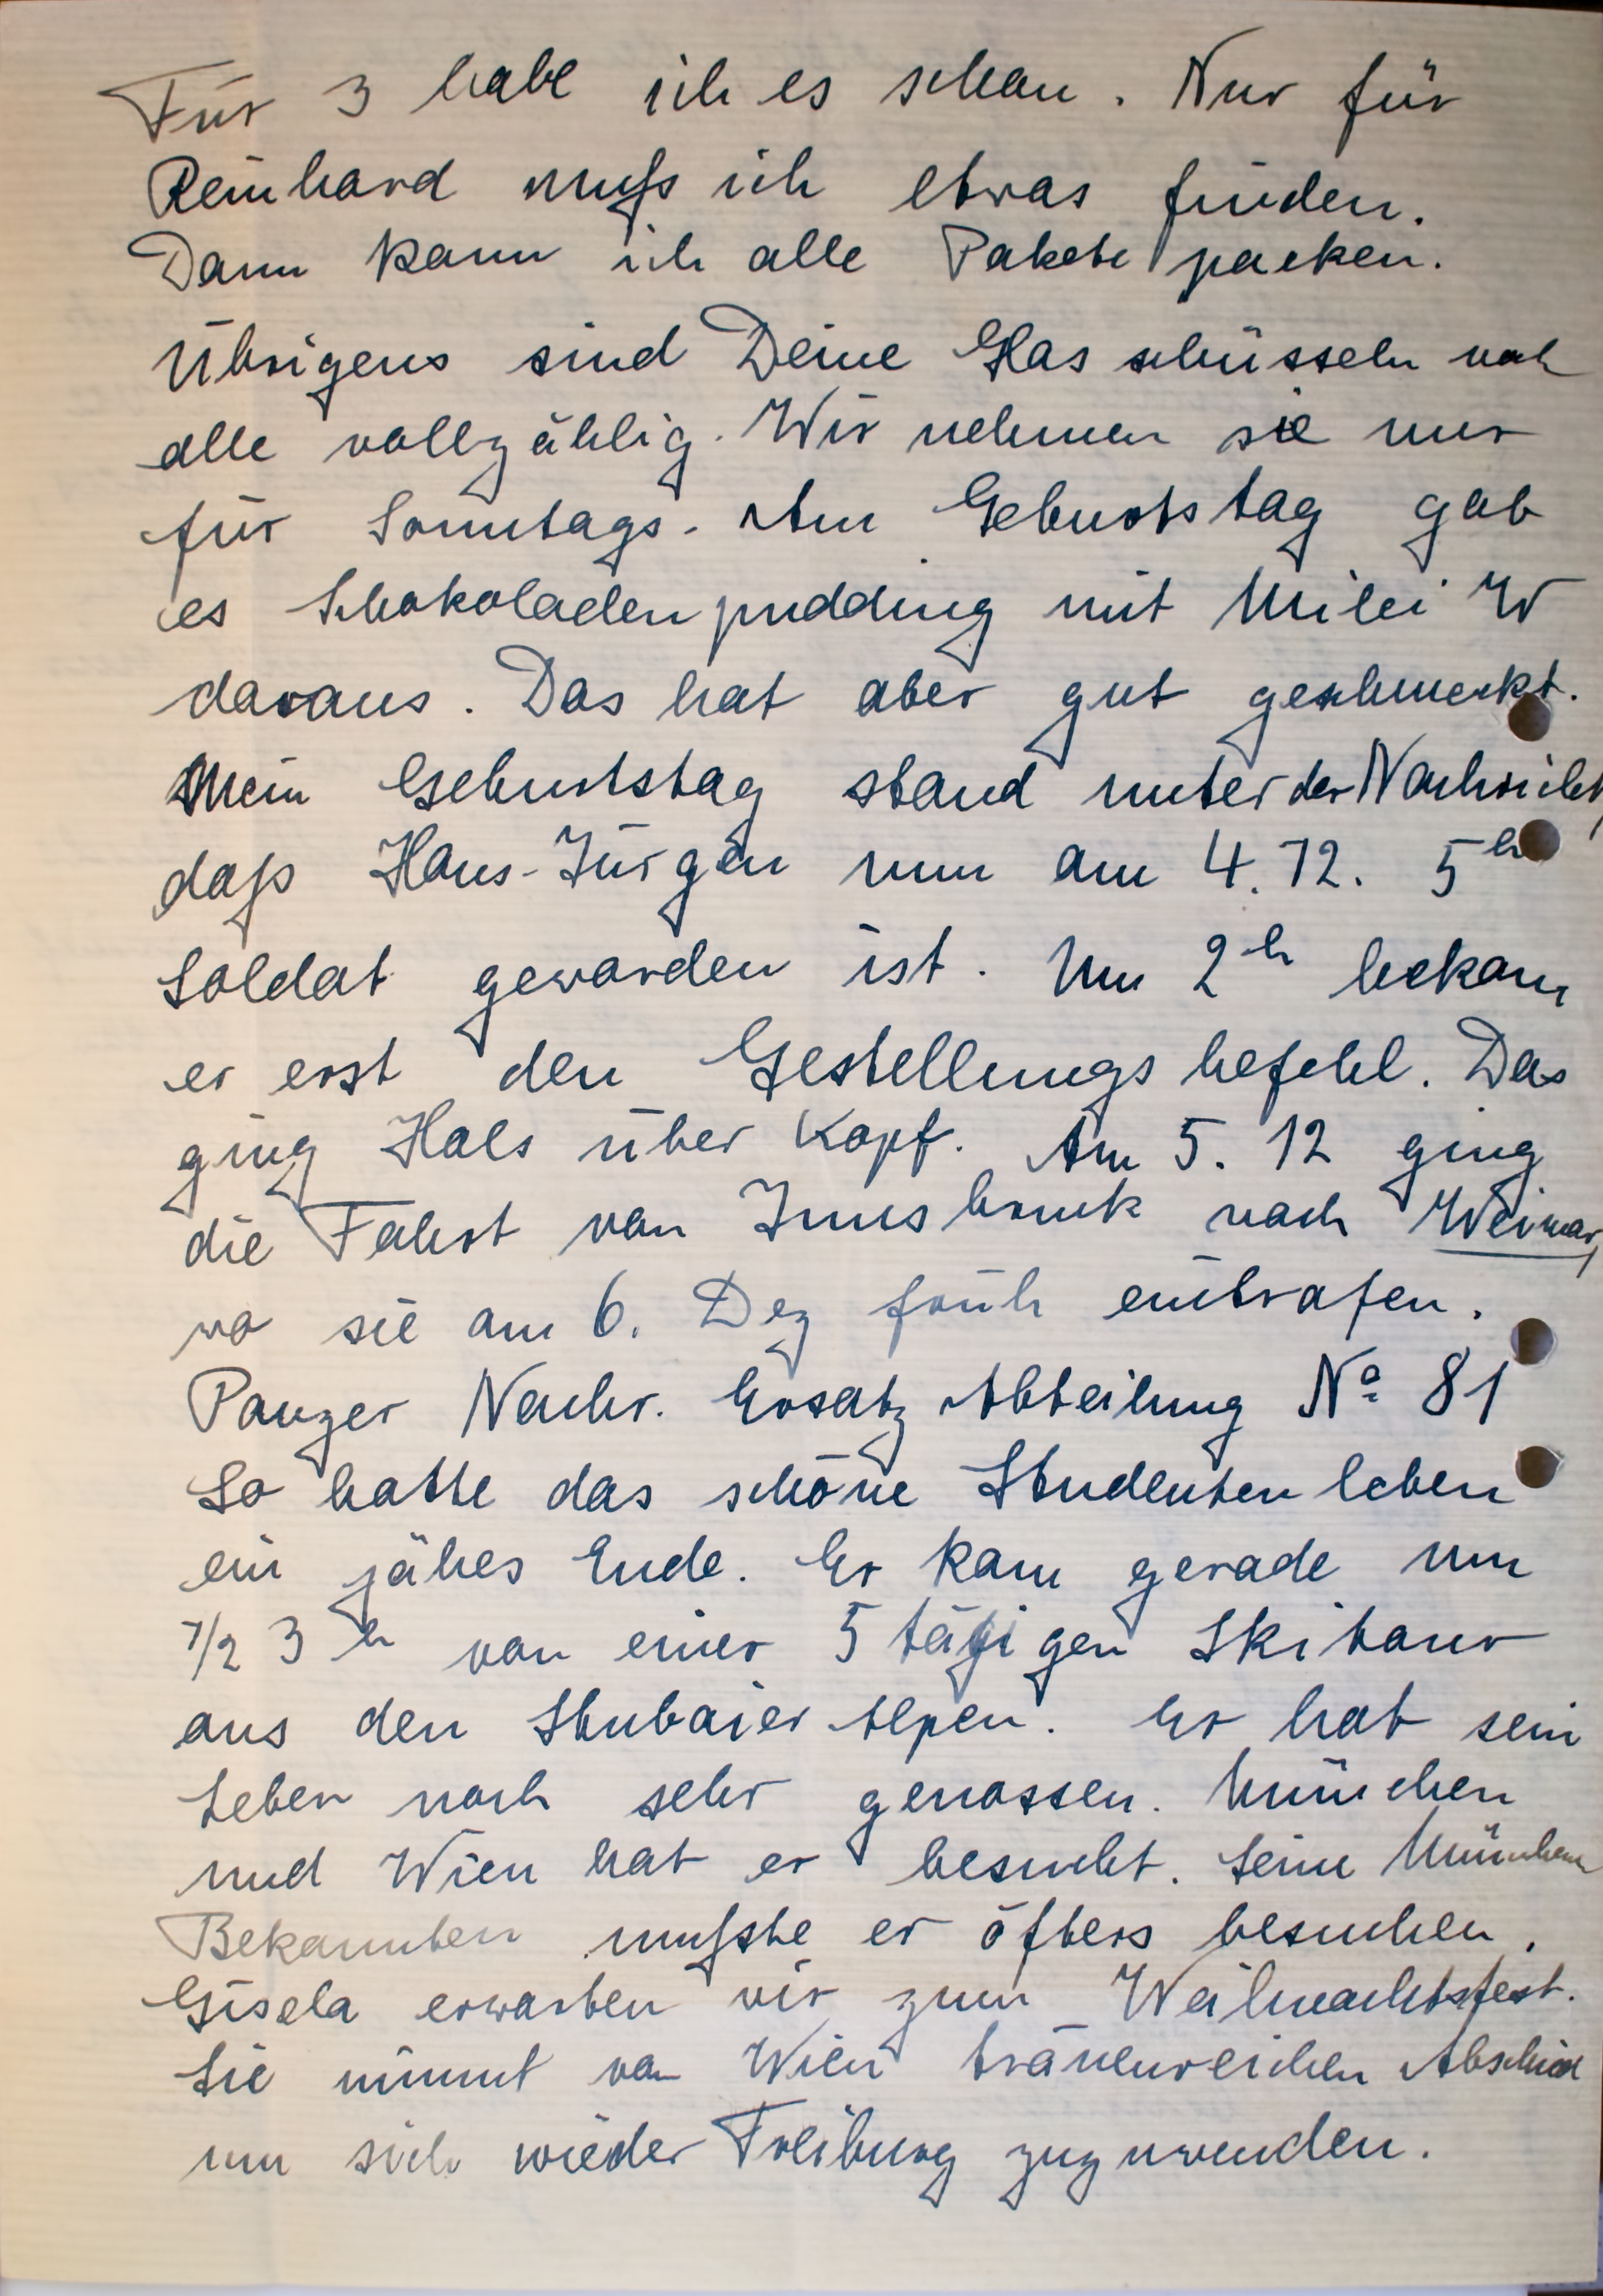 Für 3 habe ich es schon. Nur für
Reinhard muß ich etwas finden.
Dann kann ich alle Pakete packen.
Übrigens sind Deine Glasschüsseln noch
alle vollzählig. Wir nehmen sie nur
für Sonntags. Am Geburtstag gab
es Schokoladenpudding mit Milei W
daraus. Das hat aber gut geschmeckt.
Mein Geburtstag stand unter der Nachricht,
daß Hans-Jürgen nun am 4.12. 5h
Soldat geworden ist. Um 2h bekam
er erst den Gestellungsbefehl. Das
ging Hals über Kopf. Am 5. 12 ging
die Fahrt von Innsbruck nach Weimar,
wo sie am 6. Dez früh eintrafen.
Panzer Nachr. Ersatz Abteilung No 81
So hatte das schöne Studentenleben
ein jähes Ende. Er kam gerade um
1/2 3 h von einer 5 tägigen Skitour
aus den Stubaier Alpen. Er hat sein
Leben noch sehr genossen. München
und Wien hat er besucht. Seine Münchener
Bekannten mußte er öfters besuchen.
Gisela erwarten wir zum Weihnachtsfest.
Sie nimmt von Wien tränenreichen Abschied
um sich wieder Freiburg zuzuwenden.